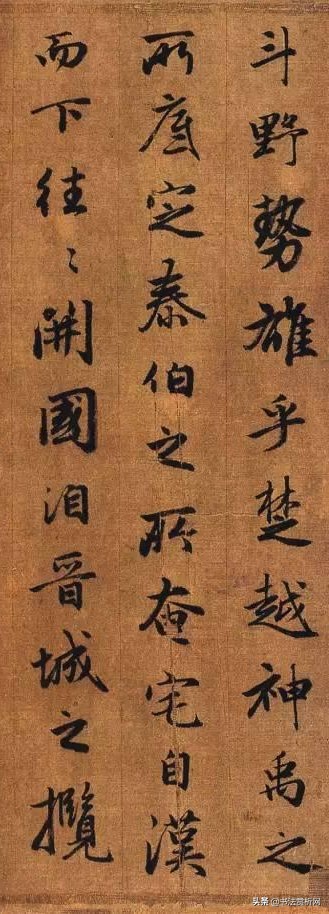 斗野勢雄乎楚越神禹之
所底定泰伯之所奄宅自漢
而下往〻開國洎晉城之攬
头条 @书法赏析网